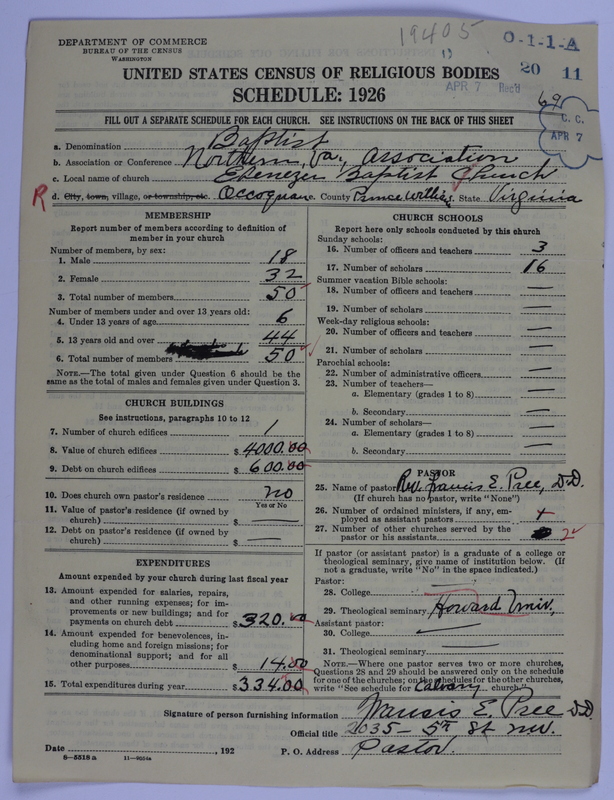 19405
DEPARTMENT OF COMMERCE
BUREAU OF THE CENSUS
WASHINGTON
O-1-1-A
20 11
UNITED STATES CENSUS OF RELIGIOUS BODIES
APR 7 Rec'd
SCHEDULE: 1926
69
FILL OUT A SEPARATE SCHEDULE FOR EACH CHURCH. SEE INSTRUCTIONS ON THE BACK OF THIS SHEET
C. C.
APR 7
a. Denomination Baptist
b. Association or Conference Northern, Va., Association
c. Local name of church Ebenezer Baptist Church
R d. City, town, village, or township, etc. Occoquan e. County Prince William f. State Virginia
MEMBERSHIP
Report number of members according to definition of member in your church
Number of members, by sex:
1. Male 18
2. Female 32
3. Total number of members 50
Number of members under and over 13 years old:
4. Under 13 years of age 6
5. 13 years old and over 44
6. Total number of members 50
NOTE.—The total given under Question 6 should be
same as the total of males and females given under Question 3.
CHURCH BUILDINGS
See instructions, paragraphs 10 to 12
7. Number of church edifices 1
8. Value of church edifices $ 4000.00
9. Debt on church edifices $ 600.00
10. Does church own pastor's residence? No
Yes or No
11. Value of pastor's residence (if owned by
church) $ —
12. Debt on pastor's residence (if owned by
church) $ —
EXPENDITURES
Amount expended by your church during last fiscal year
13. Amount expended for salaries, repairs,
and other running expenses; for im-
provements or new buildings; and for
payments on church debt $ 320.00
14. Amount expended for benevolences, in-
cluding home and foreign missions; for
denominational support; and for all
other purposes $ 14.00
15. Total expenditures during year $ 334.00
CHURCH SCHOOLS
Report here only schools conducted by this church
Sunday schools:
16. Number of officers and teachers 3
17. Number of scholars 16
Summer vacation Bible schools:
18. Number of officers and teachers —
19. Number of scholars —
Week-day religious schools:
20. Number of officers and teachers —
21. Number of scholars —
Parochial schools:
22. Number of administrative officers —
23. Number of teachers—
a. Elementary (grades 1 to 8) —
b. Secondary —
24. Number of scholars—
a. Elementary (grades 1 to 8) —
b. Secondary —
PASTOR
25. Name of pastor Rev. Francis E. Pree, D.D.
(If church has no pastor, write "None")
26. Number of ordained ministers, if any, em-
ployed as assistant pastors
27. Number of other churches served by the
pastor or his assistants 2
If pastor (or assistant pastor) is a graduate of a college or
theological seminary, give name of institution below. (If
not a graduate, write "No" in the space indicated.)
Pastor:
28. College —
29. Theological seminary Howard Univ.
Assistant pastor:
30. College —
31. Theological seminary —
NOTE.—Where one pastor serves two or more churches,
Questions 28 and 29 should be answered only on the schedule
for one of the churches; on the schedules for the other churches,
write "See schedule for Calvary church."
Signature of person furnishing information Francis E. Pree D.D.
Official title 2035 - 5th St NW.
Date , 192 P. O. Address Pastor.
8-5518 a 11-9554a